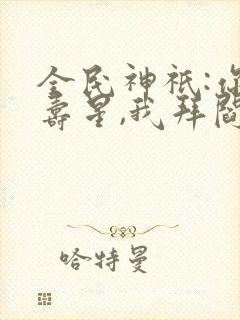 全民神祇:你
寿星,我拜阎
哈特曼